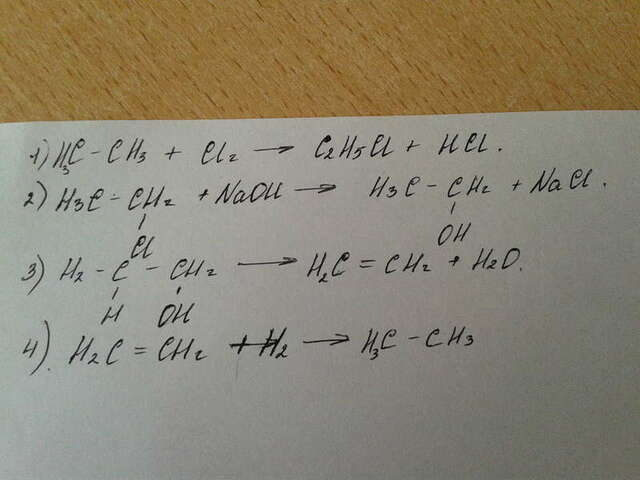 1) H₃C - CH₃ + Cl₂ → C₂H₅Cl + HCl.
2) H₃C - CH₂ + NaOH → H₃C - CH₂ + NaCl.
Cl OH
3) H₂ - C - CH₂ → H₂C = CH₂ + H₂O.
H OH
4). H₂C = CH₂ + H₂ → H₃C - CH₃